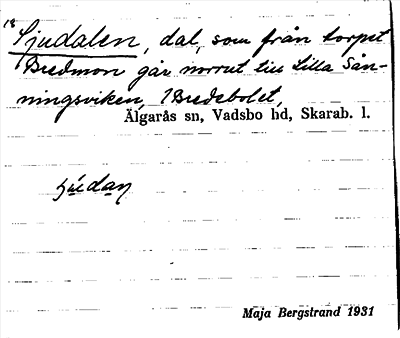 18
Sjudalen, dal, som från torpet
Bredmon går norrut till Lilla Sån-
ningsviken, 1 Bredebolet,
Älgarås sn, Vadsbo hd, Skarab. l.
Maja Bergstrand 1931